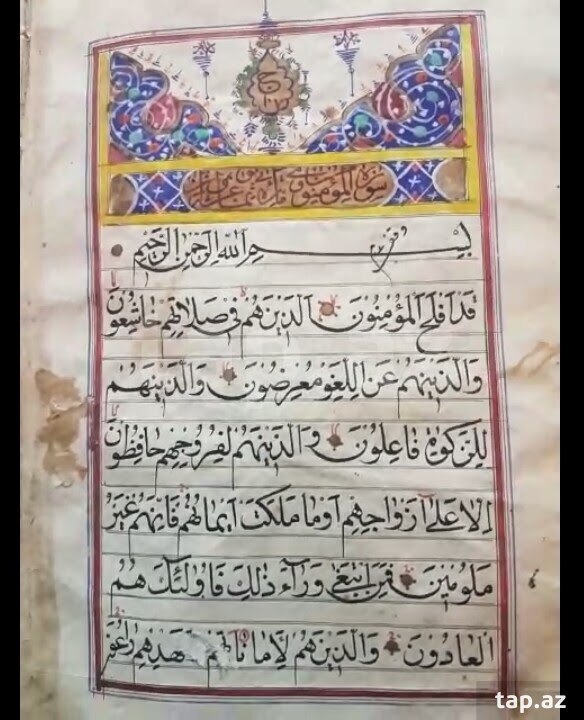 سورة المؤمنون
بسم الله الرحمن الرحيم
قد افلح المؤمنون الذينهم في صلاتهم خاشعون
والذينهم عن اللغو معرضون والذينهم
للزكوة فاعلون والذينهم لفروجهم حافظون
الا على ازواجهم او ما ملكت ايمانهم فانهم غير
ملومين فمن ابتغى ورآء ذلك فاولئك هم
العادون والذين هم لاماناتهم وعهدهم راعون
tap.az